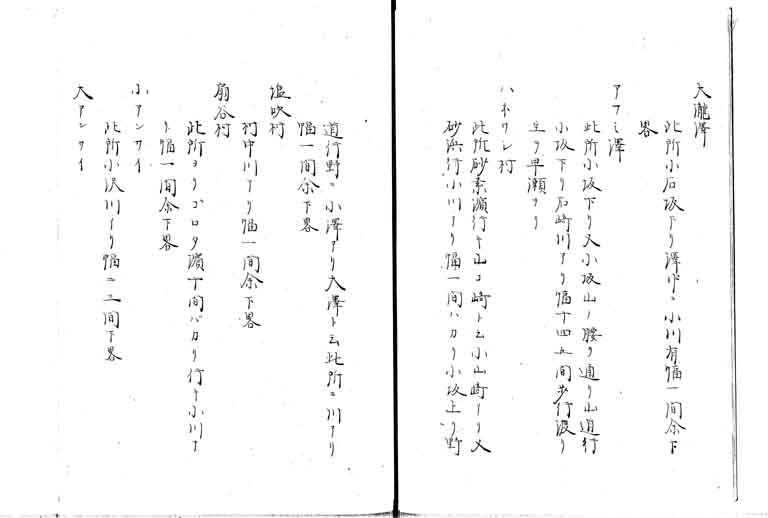 大瀧澤
此所小石坂下リ澤中ニ小川有幅一間余下
畧
アフミ澤
此所小坂下リ又小坂山ノ腰ヲ通リ山道行
小坂下リ石崎川アリ幅十四五間歩行渡リ
至テ早瀬ナリ
ハネサシ村
此所砂素濵行キ山コ崎ト云小山崎アリ又
砂浜行小川アリ幅一間バカリ小坂上リ野
道行野ニ小澤アリ大澤ト云此所ニ川アリ
幅一間余下畧
塩吹村
村中川アリ幅一間余下畧
扇谷村
此所ヨリゴロタ濵十間バカリ行キ小川ア
リ幅一間余下畧
小アンサイ
此所小沢川アリ幅二三間下畧
大アンサイ